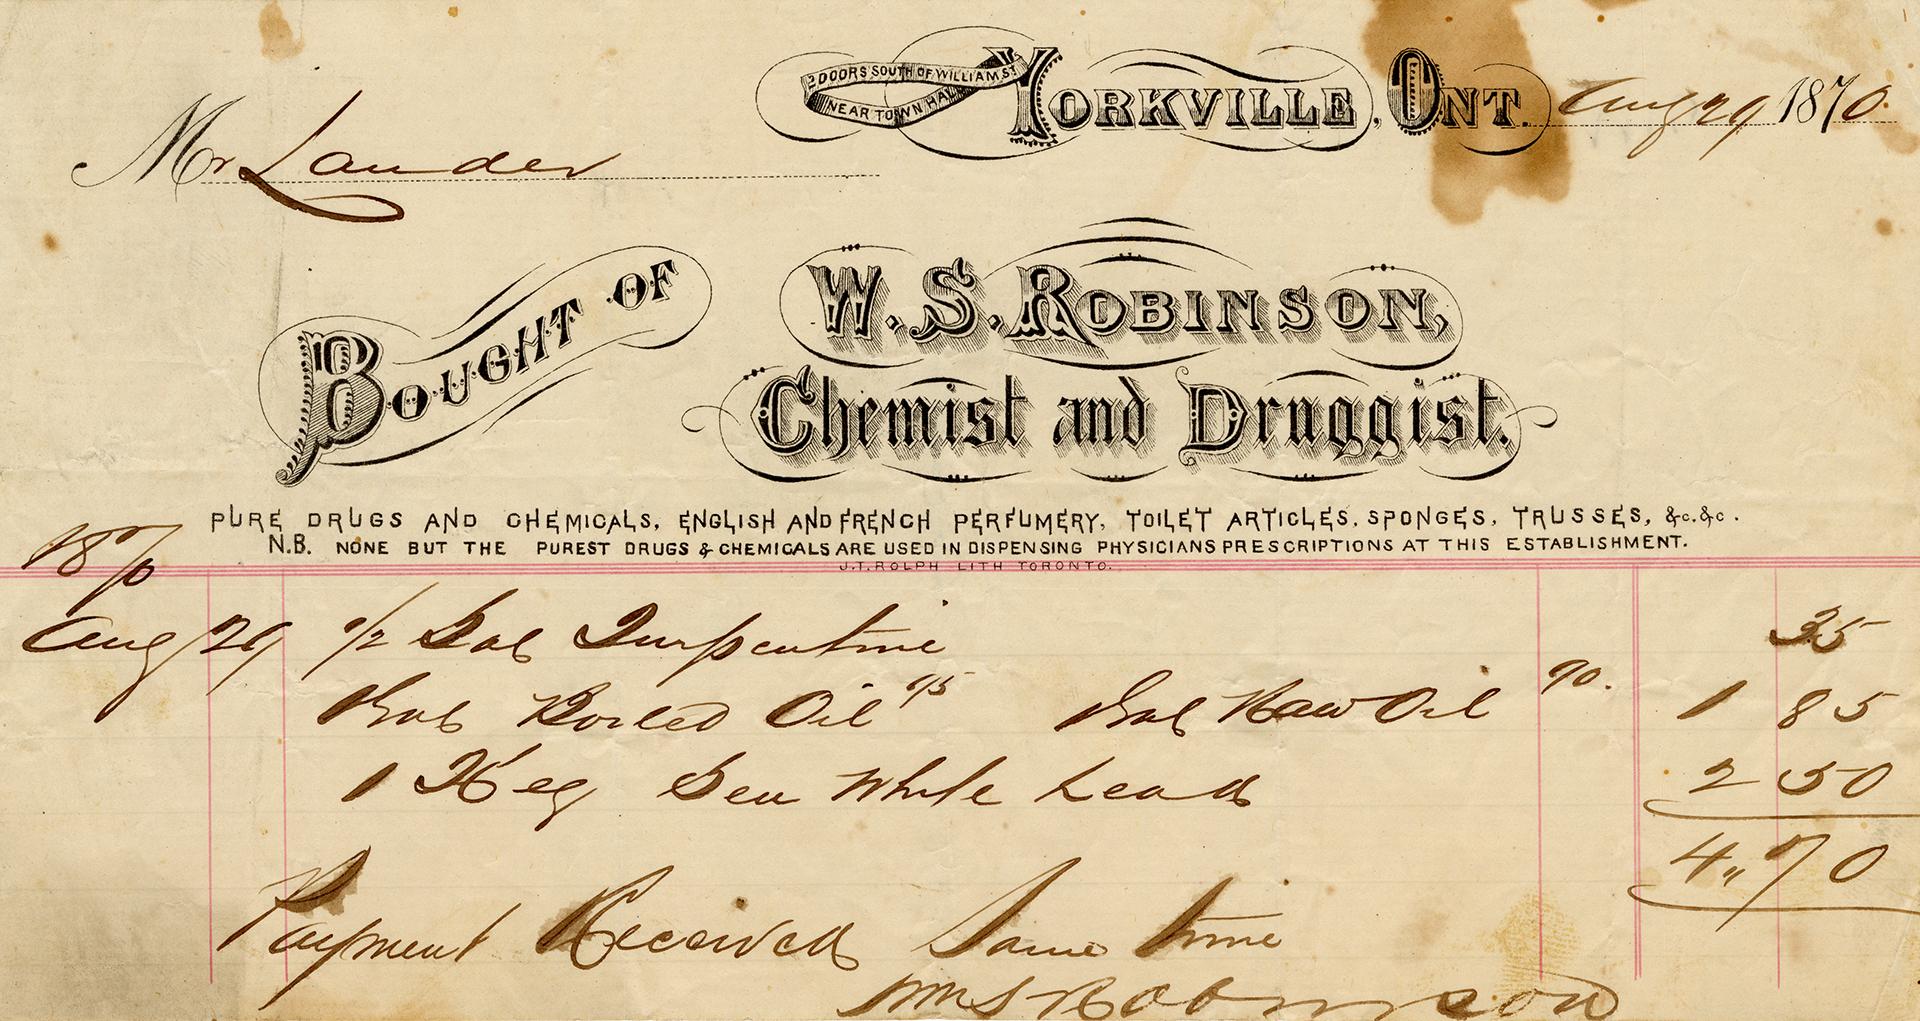 2 DOORS SOUTH OF WILLIAM ST.
NEAR TOWN HALL
YORKVILLE, ONT. Aug 29 1870.
Mr Lauder
BOUGHT OF
W. S. ROBINSON,
Chemist and Druggist.
PURE DRUGS AND CHEMICALS, ENGLISH AND FRENCH PERFUMERY, TOILET ARTICLES, SPONGES, TRUSSES, &c. &c.
N.B. NONE BUT THE PUREST DRUGS & CHEMICALS ARE USED IN DISPENSING PHYSICIANS PRESCRIPTIONS AT THIS ESTABLISHMENT.
J.T. ROLPH LITH TORONTO.
1870
Aug 29 1/2 Gal Turpentine 35
1 Gal Boiled Oil 95 1 Gal Raw Oil 90. 1 85
1 Keg Gen White Lead 2 50
4,,70
Payment Received Same time
Wm S Robinson